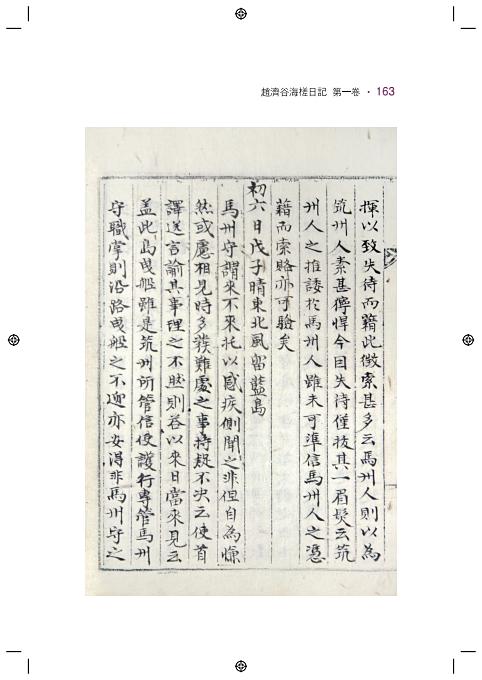 趙濟谷海槎日記 第一卷 · 163
揮以致失待而籍此徵索甚多云馬州人則以為
筑州人素甚獰悍今因失待僅拔其一眉髮云筑
州人之推諉於馬州人雖未可準信馬州人之憑
藉而索賂亦可驗矣
初六日戊子晴東北風留藍島
馬州守謂來不來托以感疾側聞之非但自為慊
然或慮相見時多發難處之事持疑不決云使首
譯送言諭其事理之不然則答以來日當來見云
盖此島曳船雖是筑州所管信使護行專管馬州
守職掌則沿路曳船之不迎亦安得非馬州守之